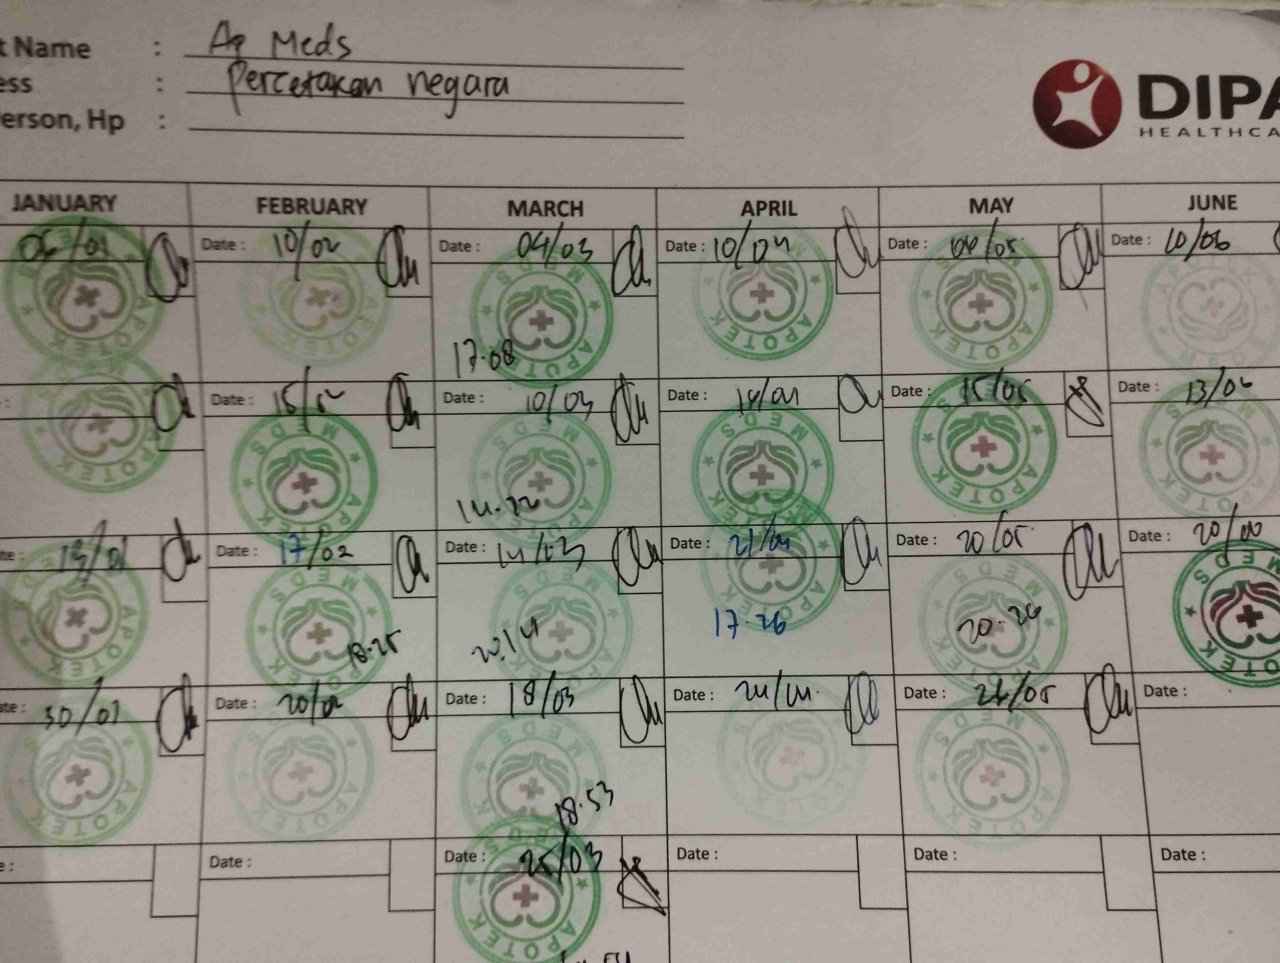 t Name : Ap Meds
ess : Percetakan negara
erson, Hp :
DIPA
HEALTHCA
JANUARY FEBRUARY MARCH APRIL MAY JUNE
06/01 Date : 10/02 Date : 04/03 Date : 10/04 Date : 06/05 Date : 10/06
MEDS APOTEK
17.08
: Date : 15/02 Date : 10/03 Date : 14/04 Date : 15/05 Date : 13/06
MEDS APOTEK
14.22
te : 15/01 Date : 17/02 Date : 14/03 Date : 21/04 Date : 20/05 Date : 20/06
MEDS APOTEK
18.25 20.14 17.26 20.26
te : 30/01 Date : 20/02 Date : 18/03 Date : 24/04. Date : 26/05 Date :
MEDS APOTEK
18.53
e : Date : Date : 25/03 Date : Date : Date :
APOTEK